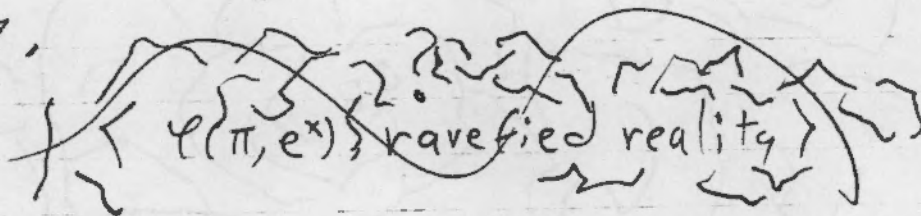 ⟨ φ(π, e^x) } ravefied reality ⟩